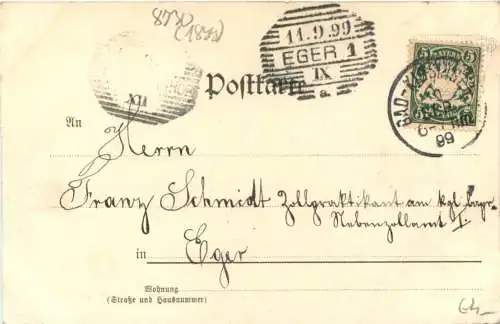 8730
(1899)
11.9.99
EGER 1
IX
a.
XII
Postkarte
5 BAYERN 5
BAD-KISSINGEN
99
An
Herrn
Franz Schmidt Zollpraktikant am kgl. bayr.
Nebenzollamt I.
in Eger
Wohnung
(Straße und Hausnummer)